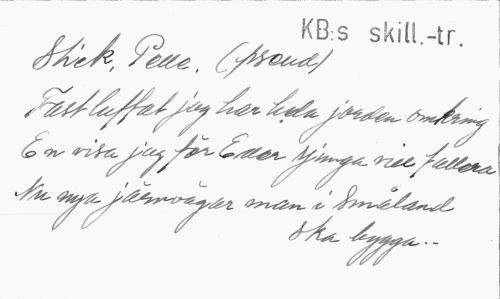 KB:s skill.-tr.
Stick, Pelle. (pseud)
Fast luffat jag har hela jorden omkring
En visa jag för Eder sjunga vill fallera
Nu nya järnvägar man i Småland
ska bygga..